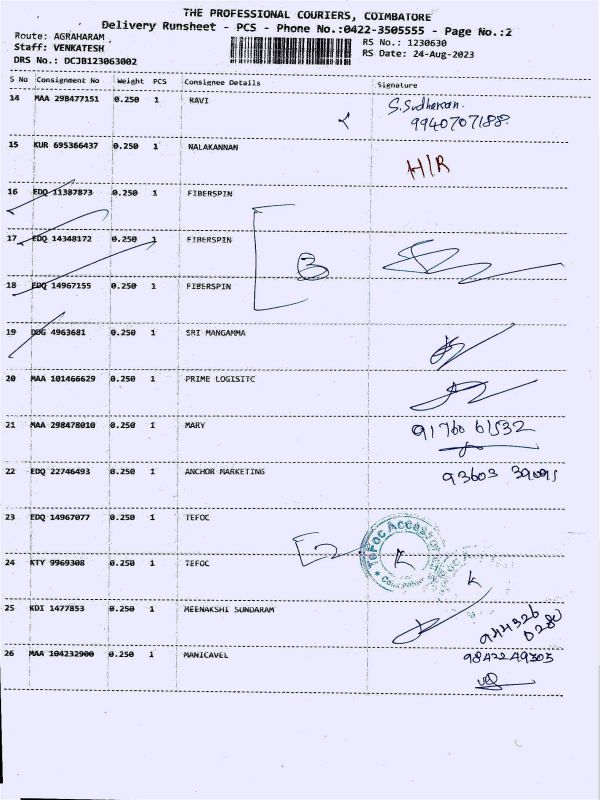 THE PROFESSIONAL COURIERS, COIMBATORE
Delivery Runsheet - PCS - Phone No.:0422-3505555 - Page No.:2
Route: AGRAHARAM .
RS No.: 1230630
Staff: VENKATESH
RS Date: 24-Aug-2023
DRS No.: DCJB123063002
S No Consignment No Weight PCS Consignee Details Signature
14 MAA 298477151 0.250 1 RAVI S.Sudharsan.
9940707188
15 KUR 695366437 0.250 1 NALAKANNAN H/R
16 EDQ 11387873 0.250 1 FIBERSPIN
17 EDQ 14348172 0.250 1 FIBERSPIN 3
18 EDQ 14967155 0.250 1 FIBERSPIN
19 4963681 0.250 1 SRI MANGAMMA
20 MAA 101466629 0.250 1 PRIME LOGISITC
21 MAA 298478010 0.250 1 MARY 91760 61532
22 EDQ 22746493 0.250 1 ANCHOR MARKETING 93603 39091
23 EDQ 14967077 0.250 1 TEFOC
2 TEFOC
24 KTY 9969308 0.250 1 TEFOC
25 KDI 1477853 0.250 1 MEENAKSHI SUNDARAM 944326
0280
26 MAA 104232900 0.250 1 MANICAVEL 9842249303